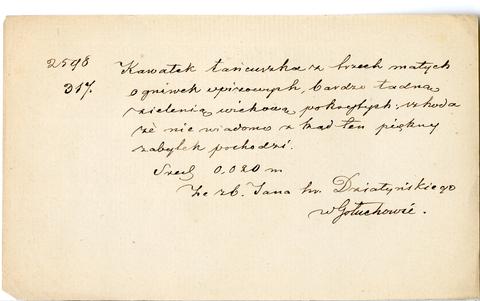 2598 Kawałek łańcuszka z trzech małych
317. ogniwek spiżowych, bardzo ładną
zielenią wiekową pokrytych, szkoda
że nie wiadomo z kąd ten piękny
zabytek pochodzi.
0,020 m
Ze zb. Jana hr. Działyńskiego
w Gołuchowie.